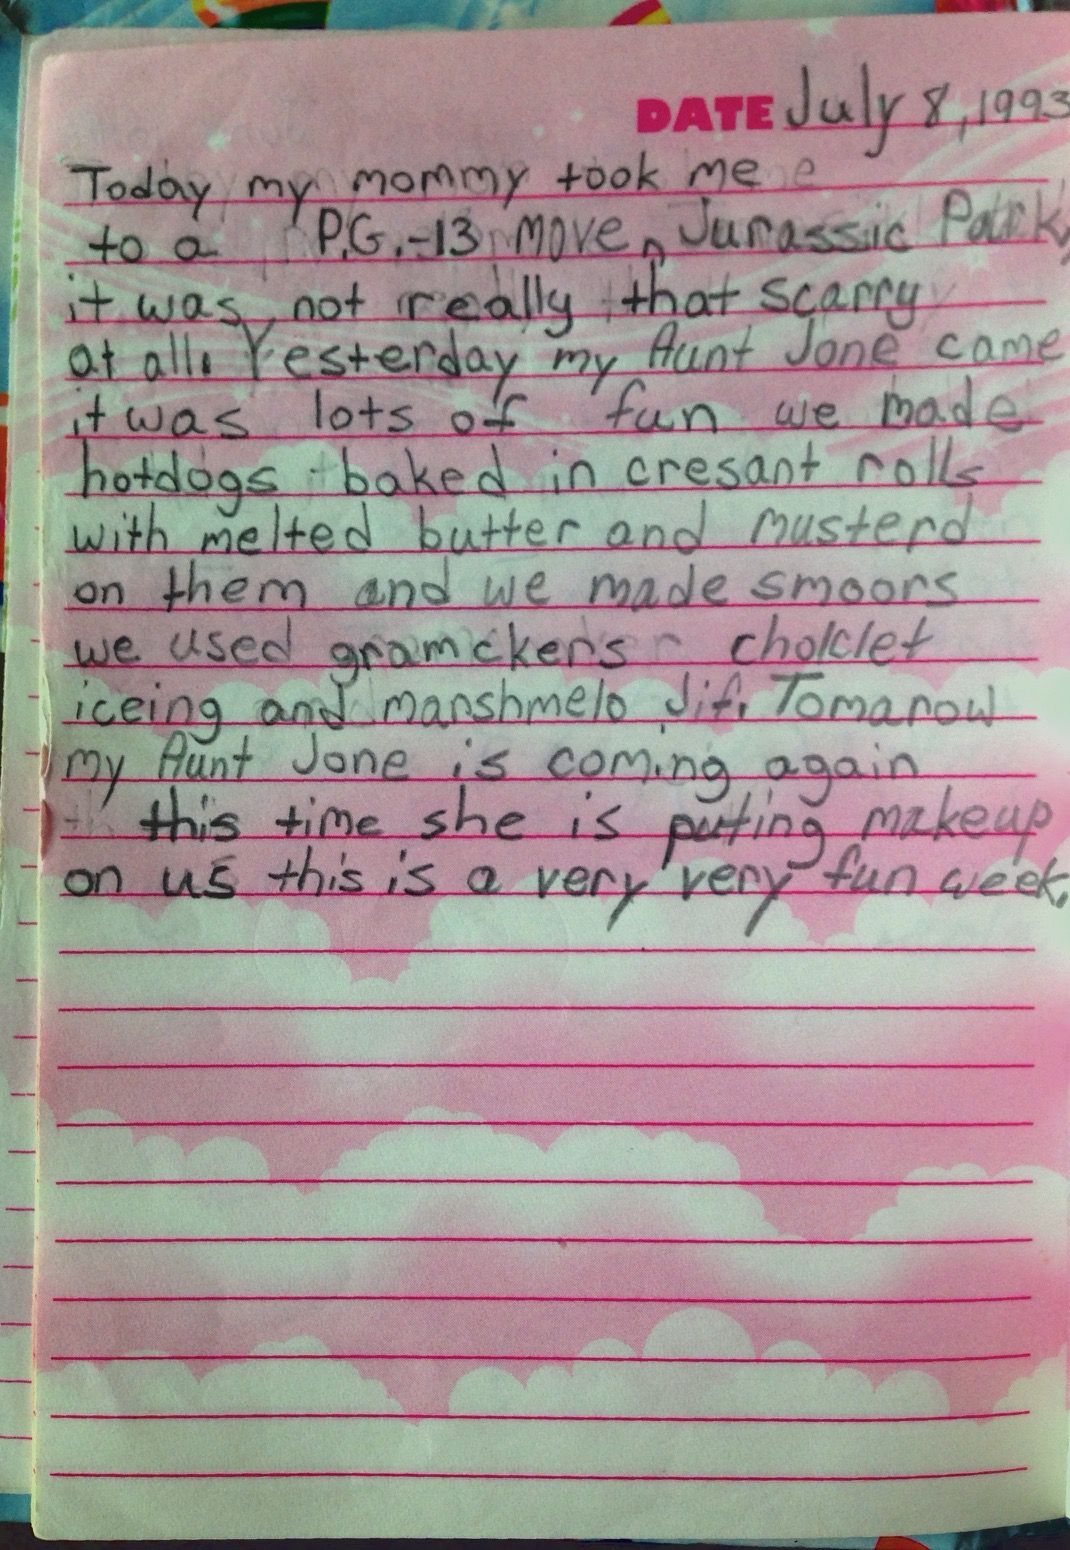 DATE July 8, 1993
Today my mommy took me
to a P.G.-13 move, Jurassic Park,
it was not really that scarry
at all. Yesterday my Aunt Jone came
it was lots of fun we made
hotdogs baked in cresant rolls
with melted butter and musterd
on them and we made smoors
we used gramckers cholclet
iceing and marshmelo Jif. Tomarow
my Aunt Jone is coming again
this time she is puting makeup
on us this is a very very fun week.